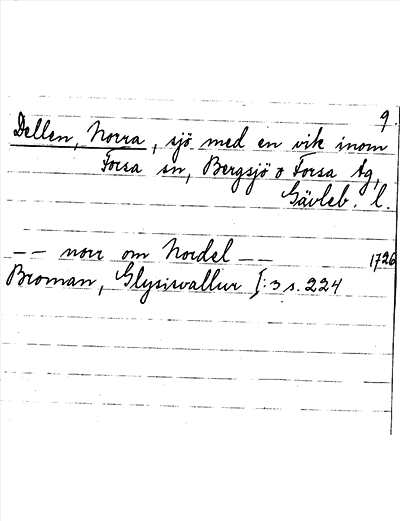 9.
Dellen, Norra, sjö med en vik inom
Forsa sn, Bergsjö o Forsa tg,
Gävleb. l.
-- norr om Nordel -- 1726
Broman, Glysisvallur I:3 s. 224